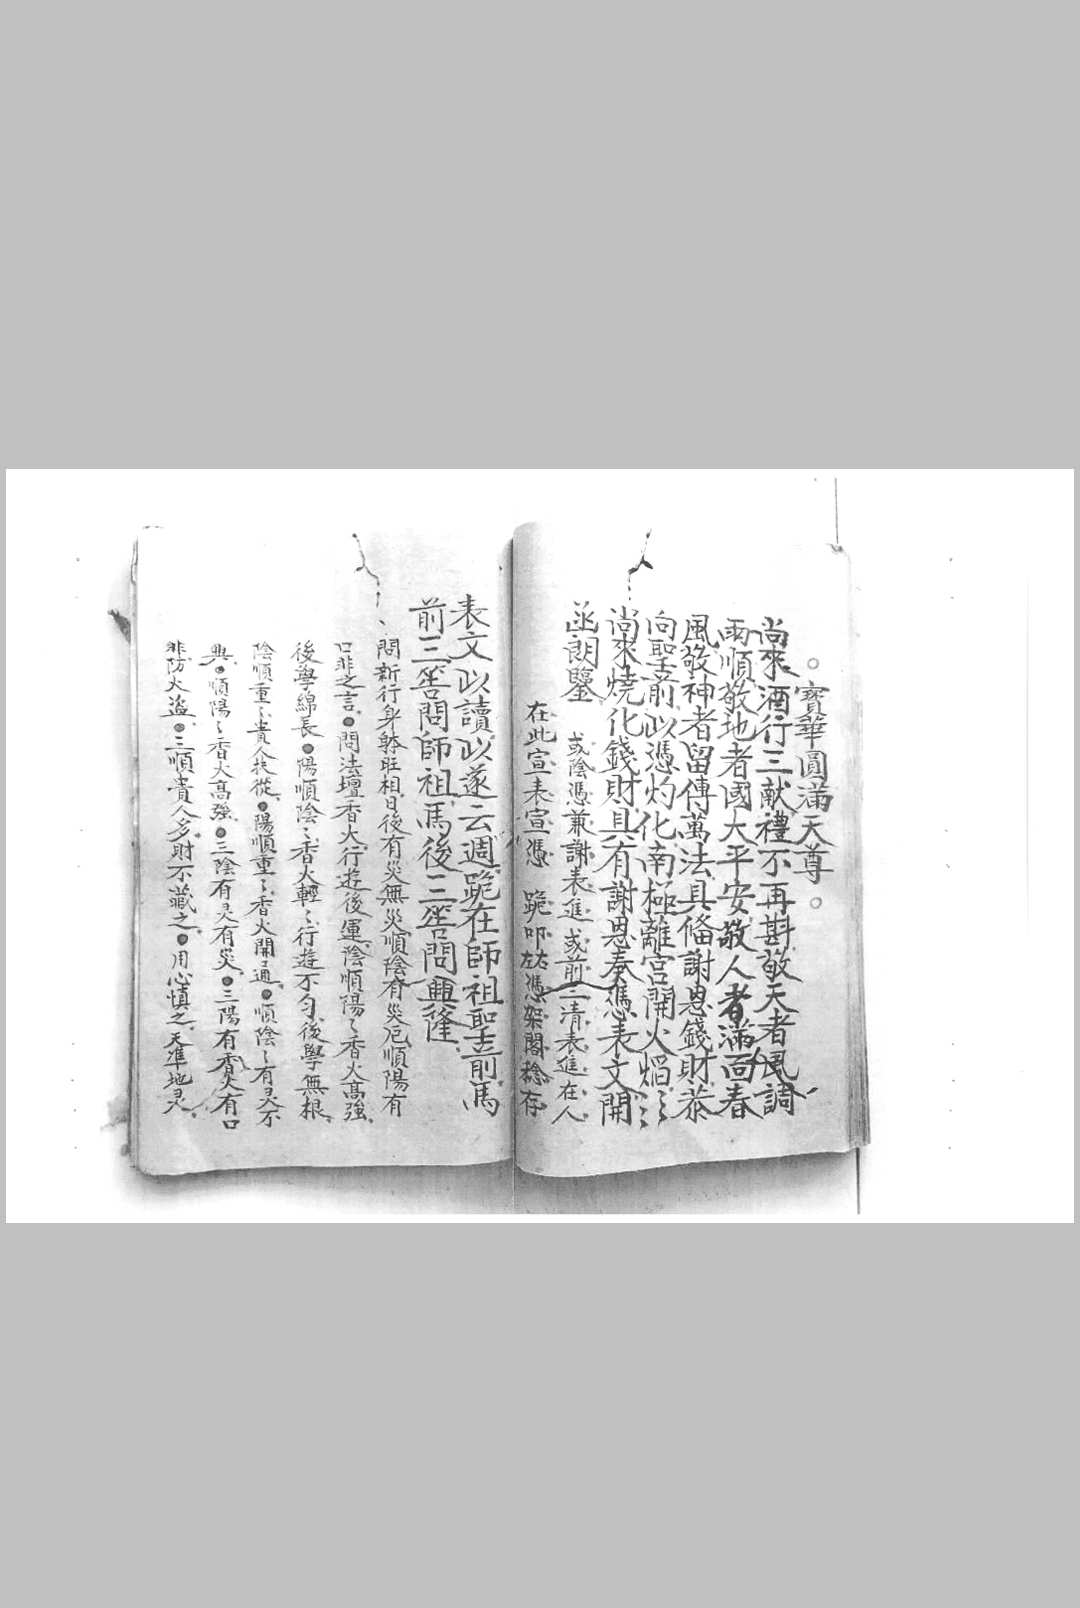 ○寶華圓滿天尊○
尚來酒行三献禮不再斟敬天者風調
雨順敬地者國太平安敬人者滿面春
風敬神者留傳萬法具俻謝恩錢財恭
向聖前以憑灼化南極離宫開火焰〻
尚來燒化錢財具有謝恩奏憑表文開
函朗鑒 或陰憑兼謝表進或前三清表進在人
在此宣表宣憑 跪叩左右憑架閣稔存
表文以讀以遂云週跪在師祖聖前馬
前三筶問師祖馬後三筶問興隆
問新行身躰旺相日後有災無災順陰有災厄順陽有
口非之言●問法壇香火行遊後運陰順陽〻香火高強
後學綿長●陽順陰〻香火輕〻行遊不勻後學無根
陰順重〻貴人扶從●陽順重〻香火開通●順陰〻有灵不
典●順陽〻香火高強●三陰有灵有災●三陽有香火有口
非防火盗●三順貴人多財不藏之●用心慎之天準地灵